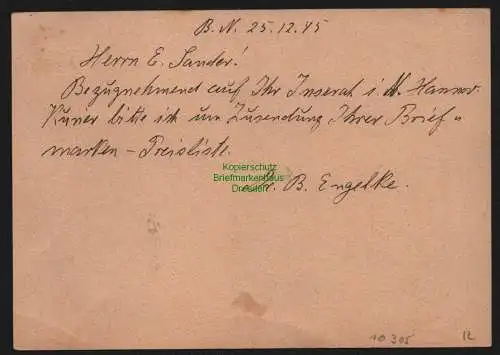 B. N. 25.12.45
Herrn E. Sander!
Bezugnehmend auf Ihr Inserat i. N. Hannov.
Kurier bitte ich um Zusendung Ihrer Brief-
marken-Preisliste.
Kopierschutz
Briefmarkenhaus
Dresden
B. Engelke.
10 305